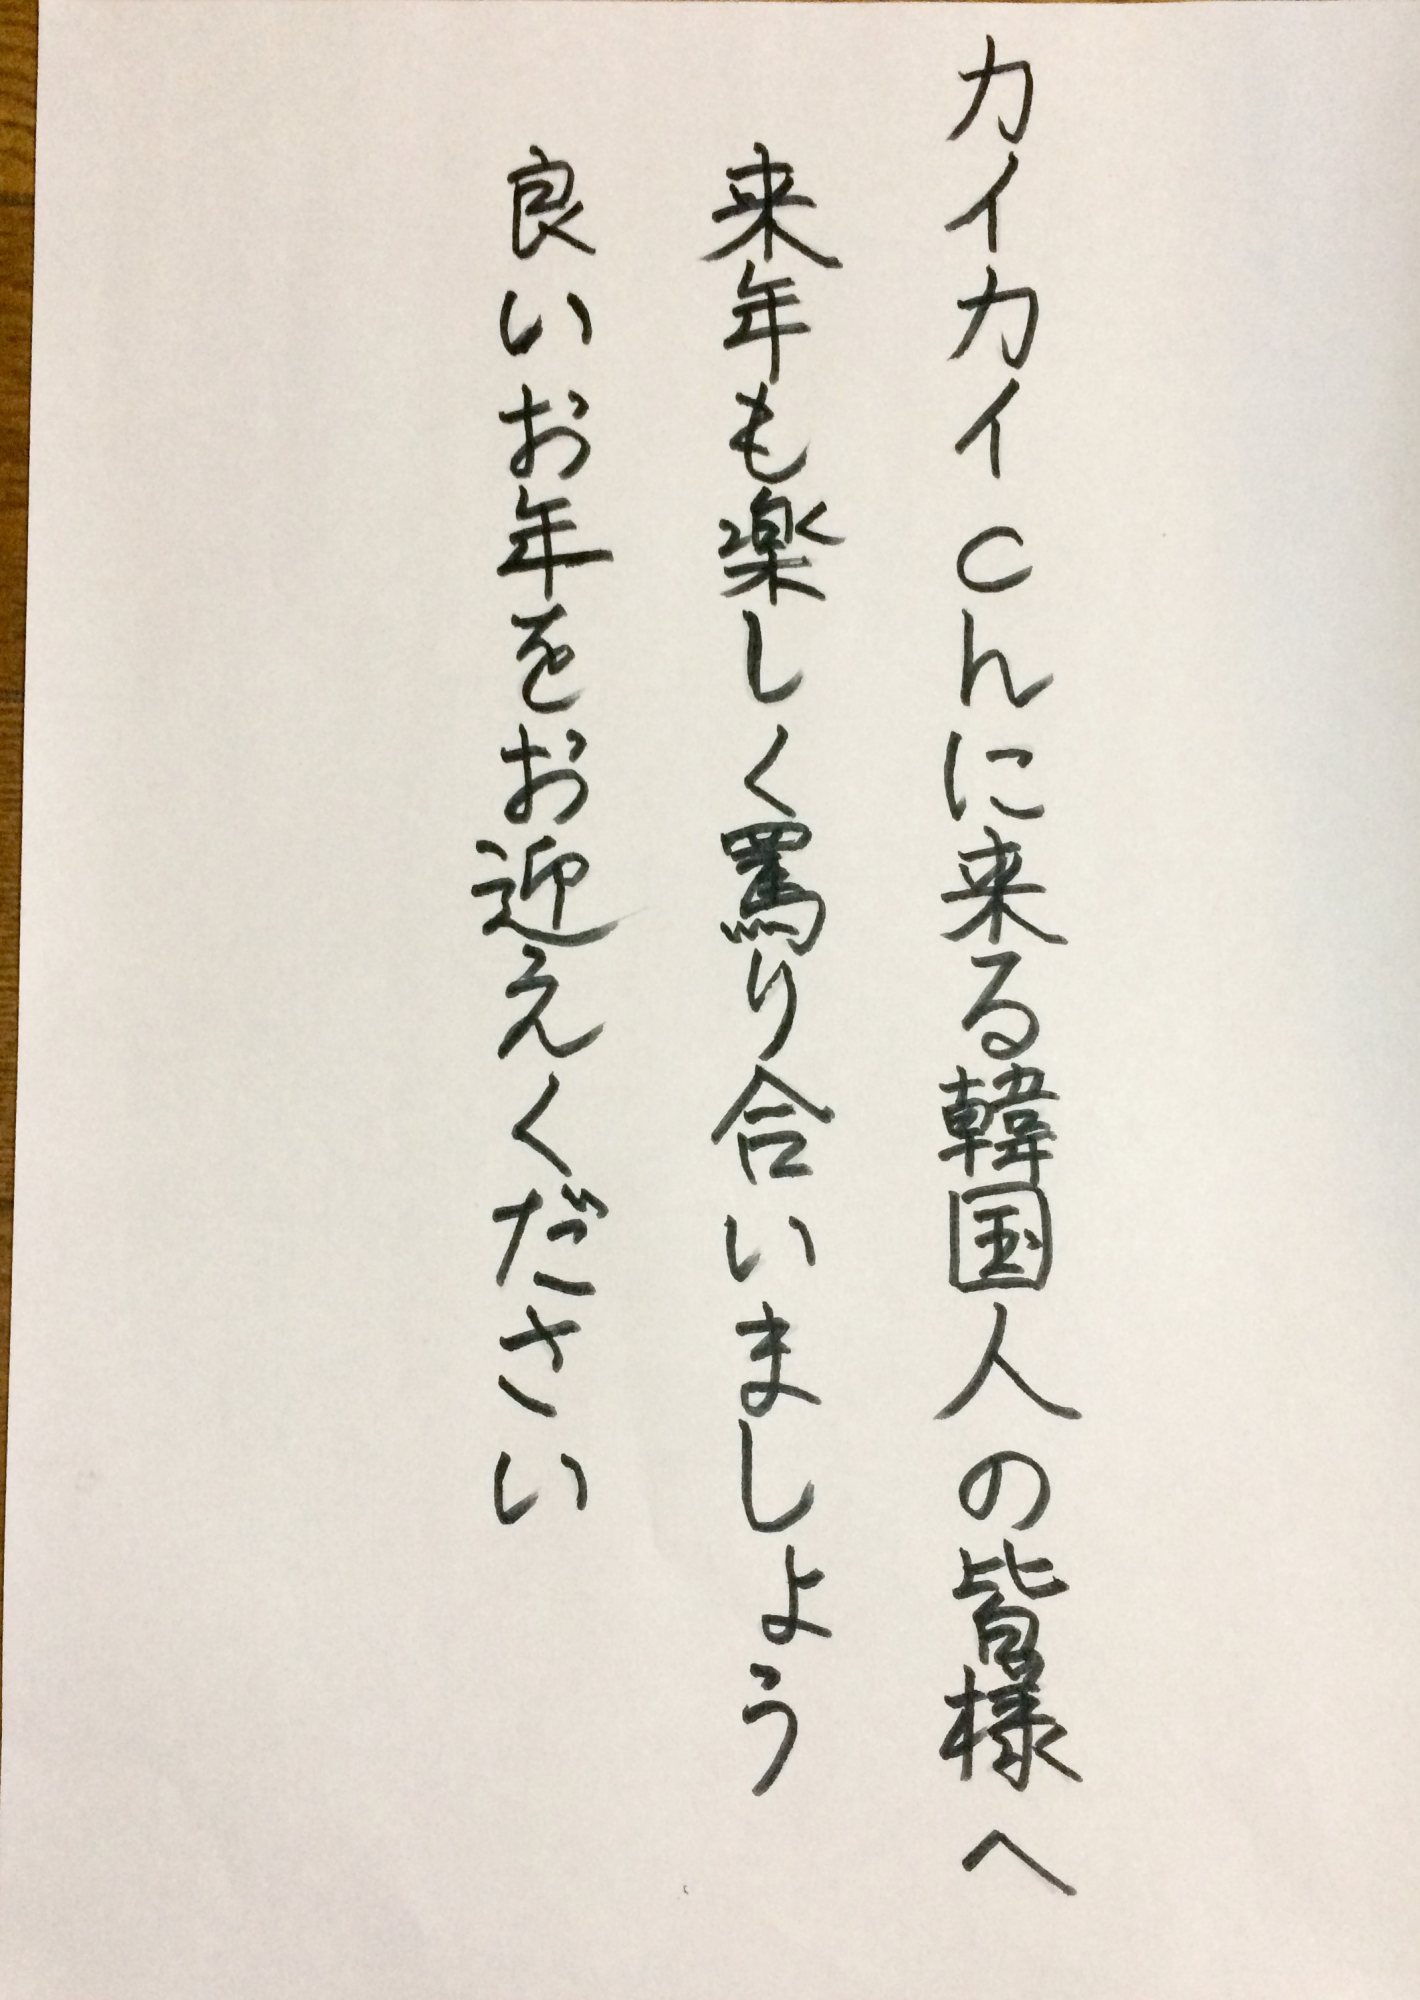 カイカイchに来る韓国人の皆様へ
来年も楽しく罵り合いましょう
良いお年をお迎えください